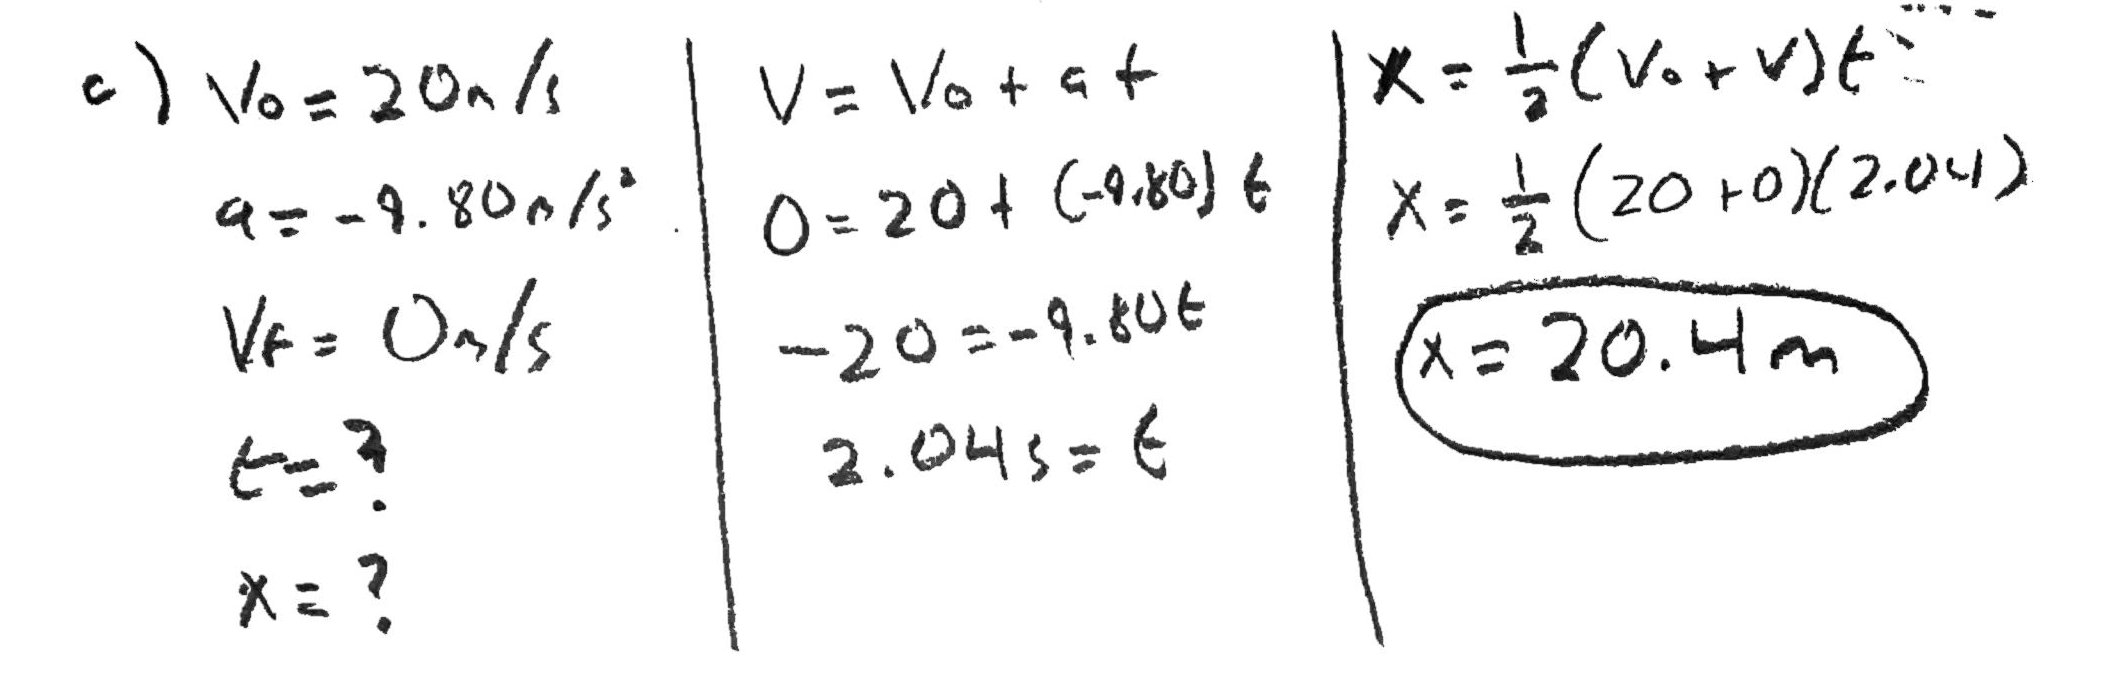 c) V₀ = 20m/s
a = -9.80m/s²
Vf = 0m/s
t = ?
x = ?
V = V₀ + at
0 = 20 + (-9.80) t
-20 = -9.80t
2.04s = t
x = ½(V₀ + V)t
x = ½(20+0)(2.04)
x = 20.4m